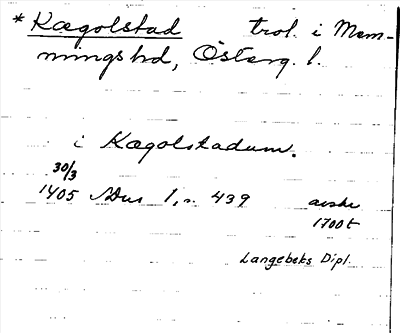 * Kægolstad trol. i Mem-
mingshd, Österg. l.
i Kægolstadum.
30/3
1405 SDns 1, s. 439 avskr
1700t
Langebeks Dipl.